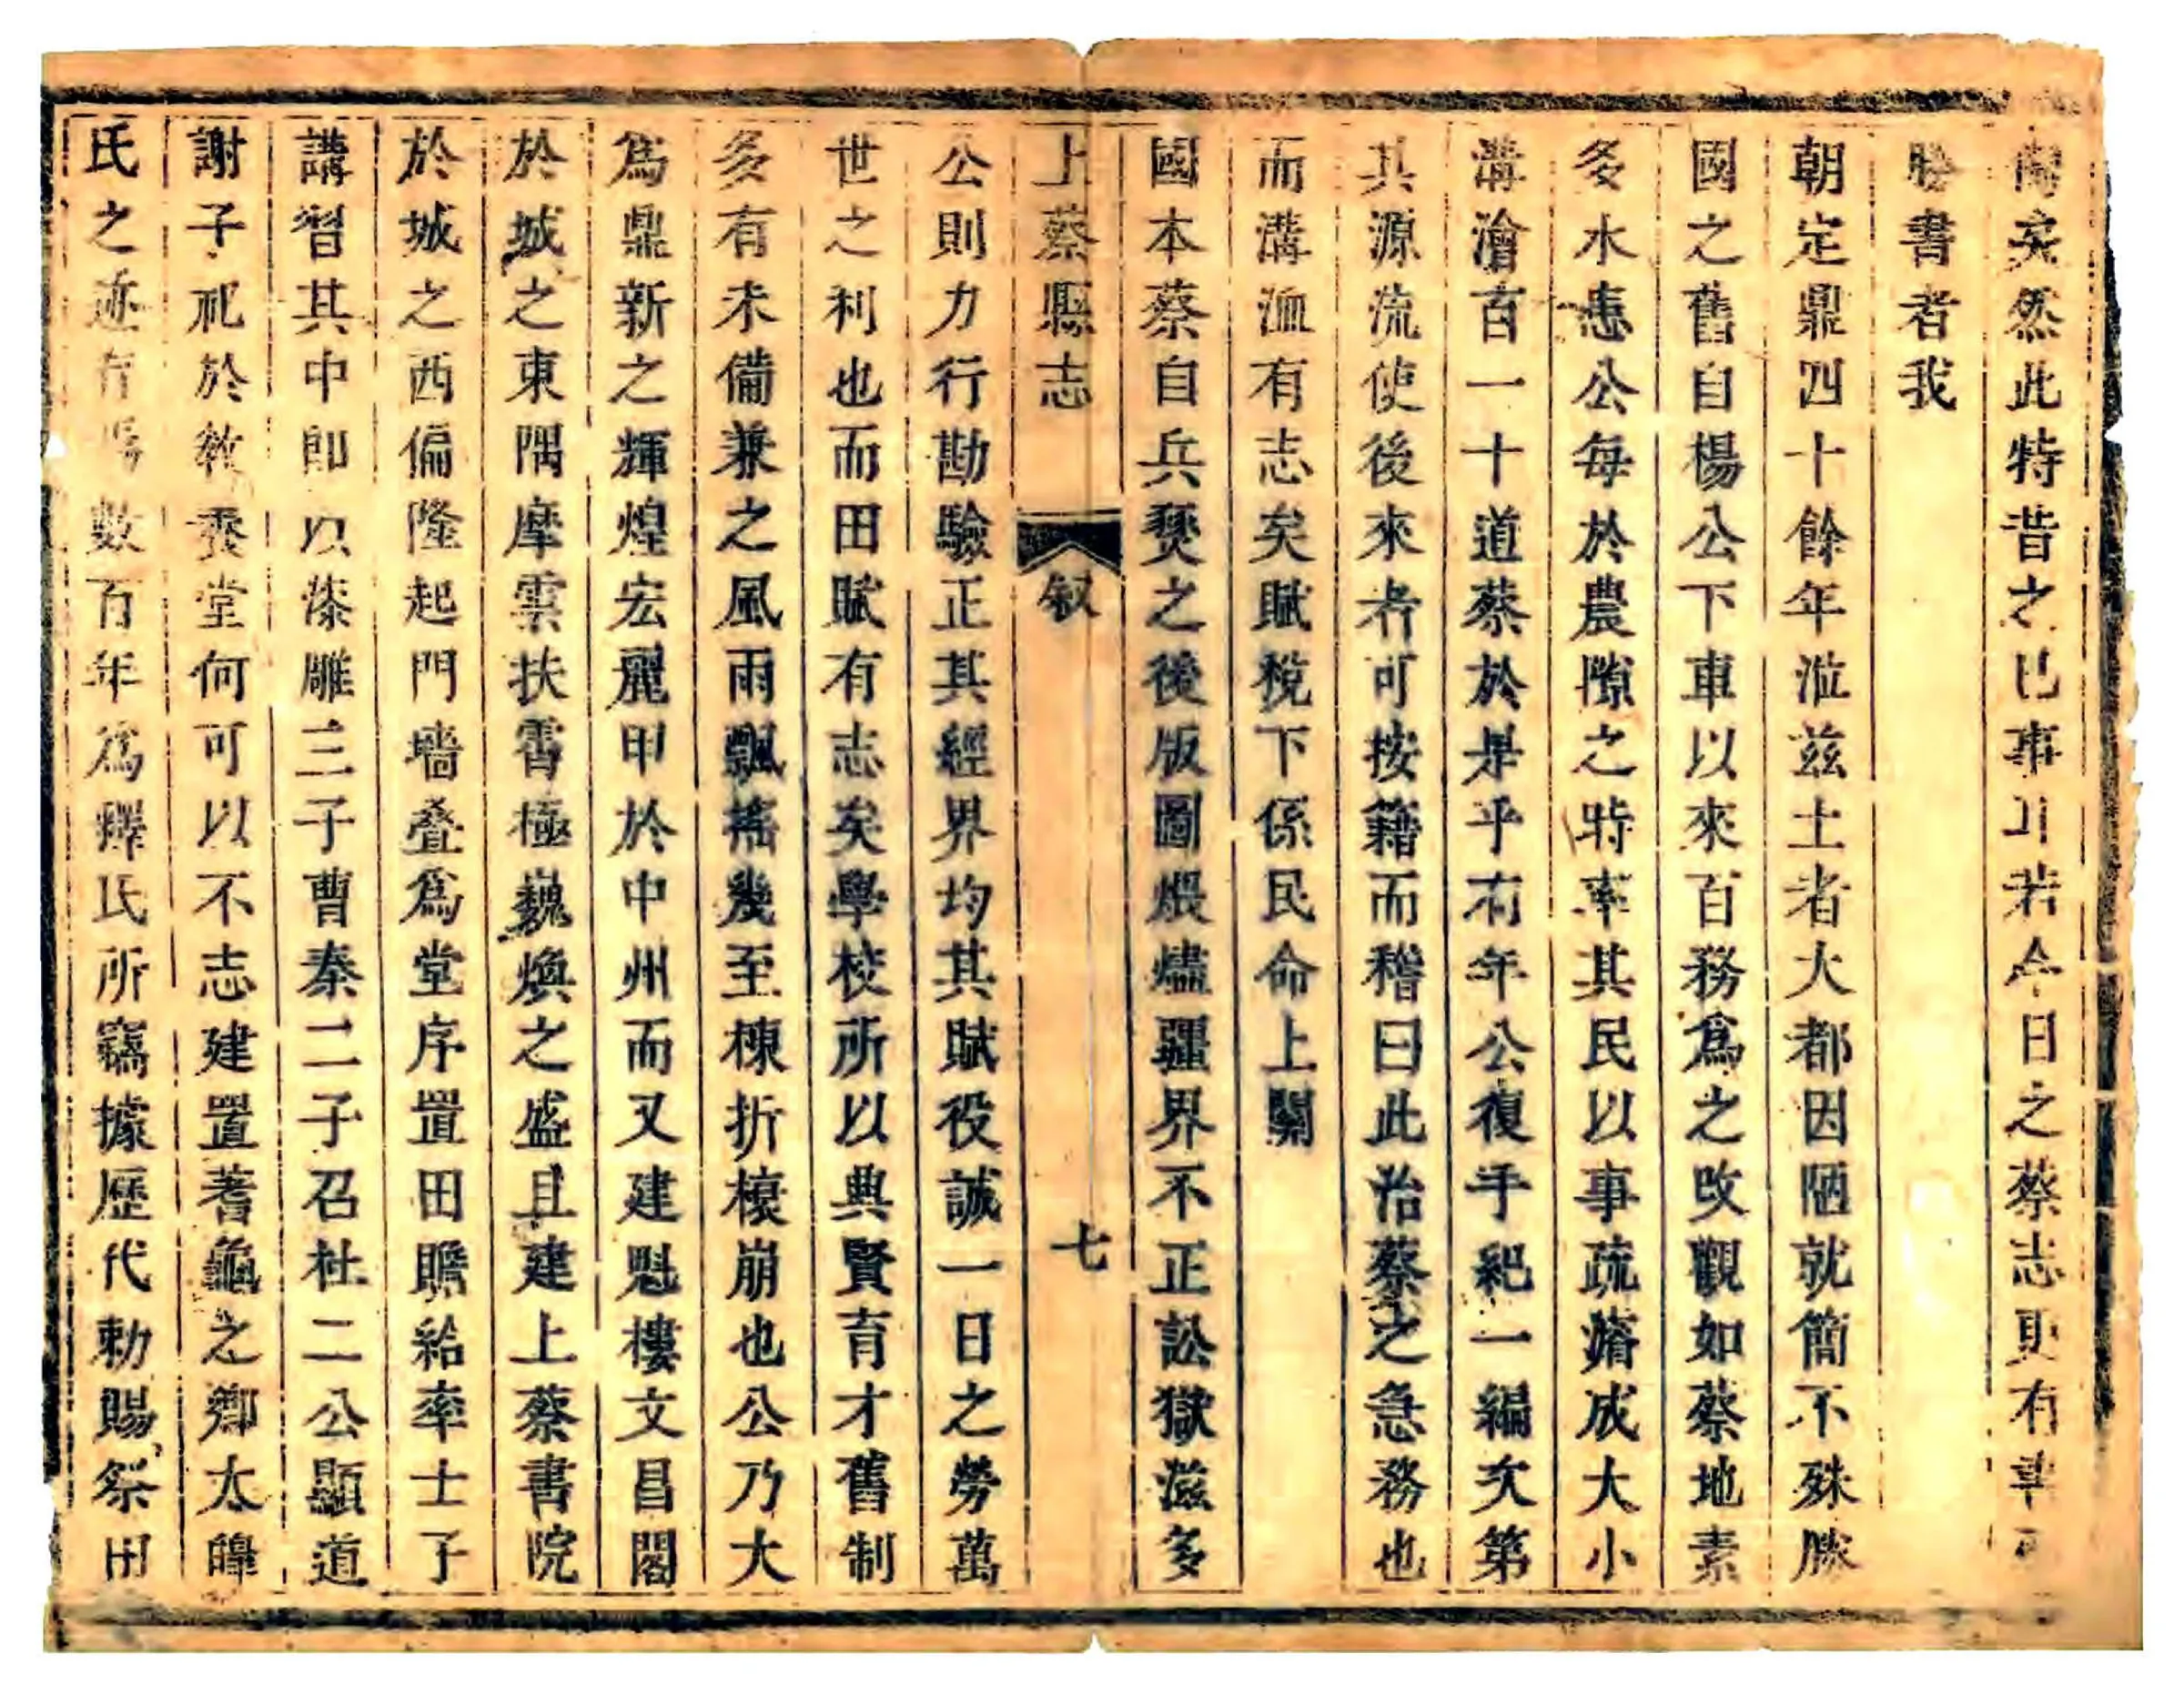 矣然此特昔之已事耳若今日之蔡志更有
勝書者我
朝定鼎四十餘年涖兹土者大都因陋就簡不殊勝
國之舊自楊公下車以來百務爲之改觀如蔡地素
多水患公每於農隙之時率其民以事疏濬成大小
溝澮百一十道蔡於是乎有年公復手紀一編次第
其源流使後來者可按籍而稽曰此治蔡之急務也
而溝洫有志矣賦稅下係民命上關
國本蔡自兵燹之後版圖煨燼疆界不正訟獄滋多
上蔡縣志 叙 七
公則力行勘驗正其經界均其賦役誠一日之勞萬
世之利也而田賦有志矣學校所以典賢育才舊制
多有未備兼之風雨飄搖幾至棟折榱崩也公乃大
爲鼎新之輝煌宏麗甲於中州而又建魁樓文昌閣
於城之東隅摩雲扶霄極巍煥之盛且建上蔡書院
於城之西偏隆起門墙叠爲堂序置田贍給率士子
講習其中即以漆雕三子曹秦二子召杜二公顯道
謝子祀於教養堂何可以不志建置蓍龜之鄉太皥
氏之迹存焉數百年爲釋氏所竊據歷代勅賜祭田